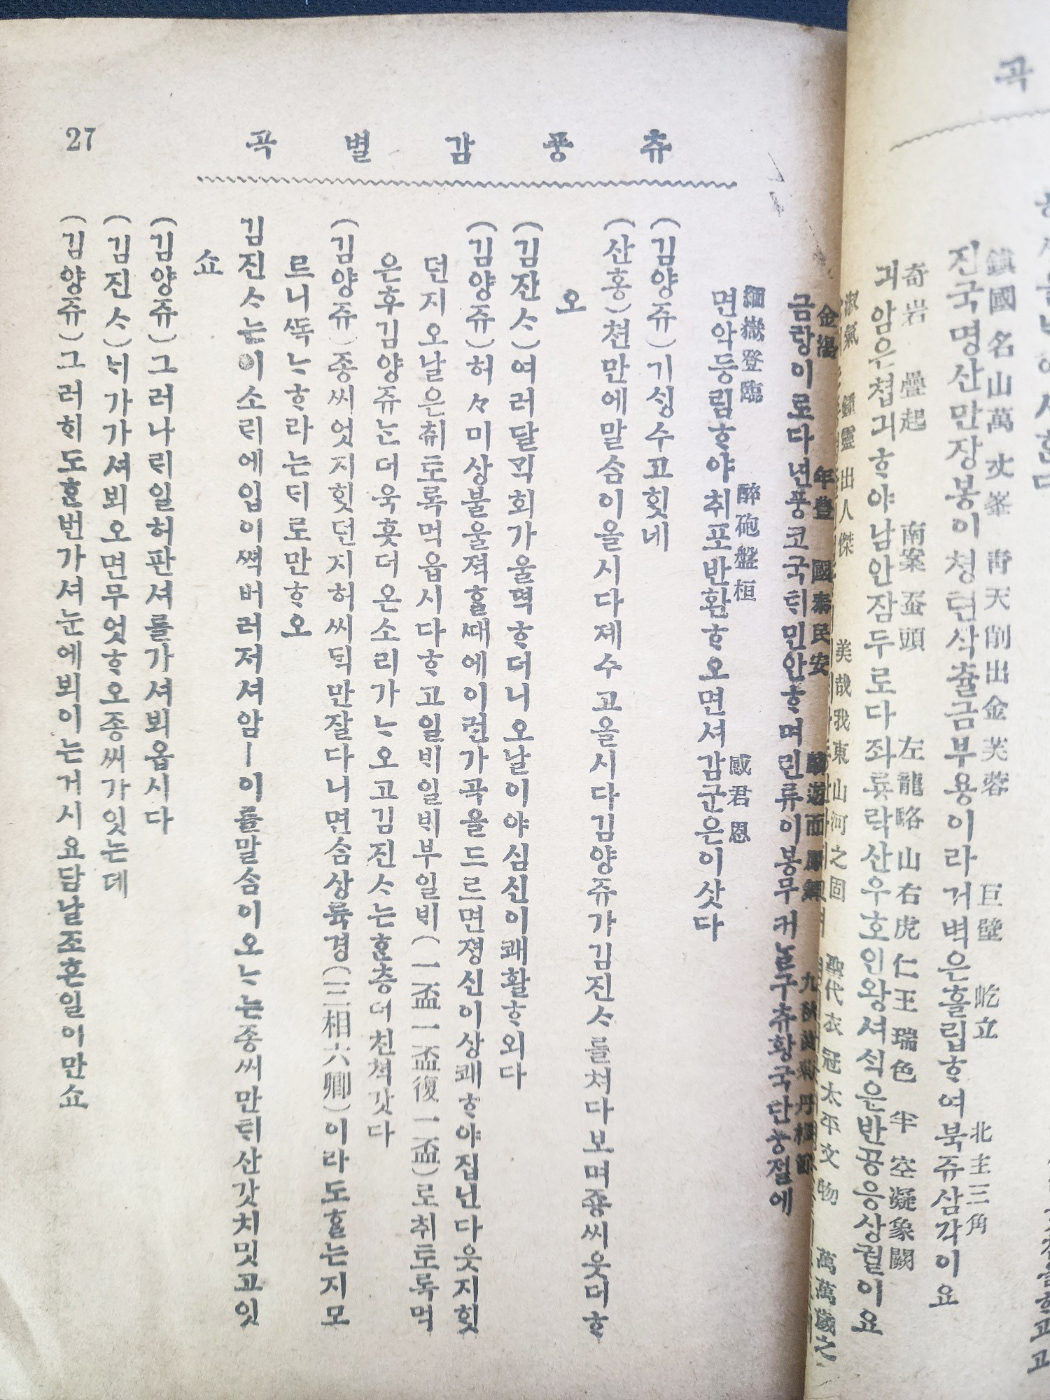 곡
鎭國名山萬丈峯 靑天削出金芙蓉 巨壁 屹立 北主三角
진국명산만장봉이쳥텬삭츌금부용이라거벽은흘립ᄒᆞ여북쥬삼각이요
奇岩 疊起 南案 蚕頭 左龍駱山右虎仁王瑞色 半空凝象闕
긔암은쳡긔ᄒᆞ야남안잠두로다좌룡락산우호인왕셔ᄉᆡᆨ은반공응상궐이요
淑氣 鍾靈出人傑 美哉我東山河之固 聖代衣冠太平文物 萬萬歲之
27
츄풍감별곡
金湯 年豊 國泰民安 九秋黃菊丹楓節
금랑이로다년풍코국ᄐᆡ민안ᄒᆞ며린류이봉무커ᄂᆞᆯ구츄황국단풍졀에
緬嶽登臨 醉砲盤桓 感君恩
면악등림ᄒᆞ야취포반환ᄒᆞ오면셔감군은이샷다
(김양쥬)기ᄉᆡᆼ수고ᄒᆡᆺ네
(산홍)쳔만에말ᄉᆞᆷ이올시다졔수고올시다김양쥬가김진ᄉᆞ를쳐다보며죵씨웃더ᄒᆞ
오
(김잔ᄉᆞ)여러달ᄆᆡᆨ회가울젹ᄒᆞ더니오날이야심신이쾌활ᄒᆞ외다
(김양쥬)허々미상불울젹ᄒᆞᆯᄯᅢ에이런가곡을드르면졍신이상쾌ᄒᆞ야집닌다웃지ᄒᆡᆺ
던지오날은취토록먹읍시다ᄒᆞ고일ᄇᆡ일ᄇᆡ부일ᄇᆡ(一盃一盃復一盃)로취토록먹
은후김양쥬ᄂᆞᆫ더욱흣더온소리가ᄂᆞ오고김진ᄉᆞ는ᄒᆞᆫ층더친쳑갓다
(김양쥬)종씨엇지ᄒᆡᆺ던지허씨ᄃᆡᆨ만잘다니면삼상륙경(三相六卿)이라도ᄒᆞᆯ는지모
르니ᄯᅩᆨᄂᆞᄒᆞ라는ᄃᆡ로만ᄒᆞ오
김진ᄉᆞ는이소ᄅᆡ에입이ᄶᅥᆨ버러저셔암ㅡ이를말ᄉᆞᆷ이오ᄂᆞ는종씨만ᄐᆡ산갓치밋고잇
쇼
(김양쥬)그러나ᄅᆡ일허판셔를가셔뵈옵시다
(김진ᄉᆞ)ᄂᆡ가가셔뵈오면무엇ᄒᆞ오종씨가잇는데
(김양쥬)그러ᄒᆡ도ᄒᆞᆫ번가셔눈에뵈이는거시요담날죠흔일이만쇼